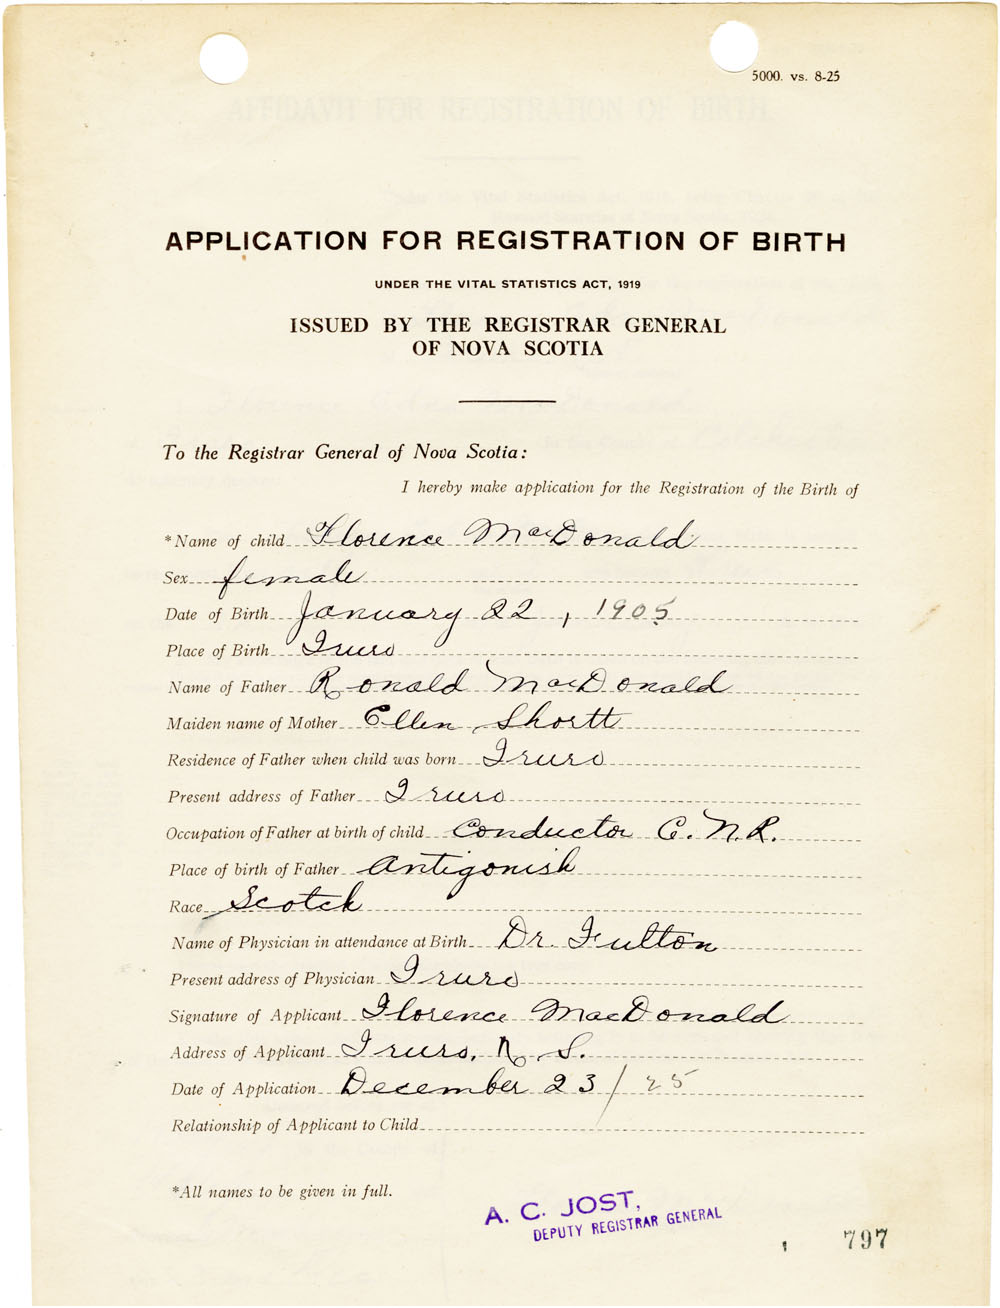 5000. vs. 8-25
AFFIDAVIT FOR REGISTRATION OF BIRTH
APPLICATION FOR REGISTRATION OF BIRTH
UNDER THE VITAL STATISTICS ACT, 1919
ISSUED BY THE REGISTRAR GENERAL
OF NOVA SCOTIA
To the Registrar General of Nova Scotia:
I hereby make application for the Registration of the Birth of
*Name of child Florence MacDonald
Sex female
Date of Birth January 22, 1905
Place of Birth Truro
Name of Father Ronald MacDonald
Maiden name of Mother Ellen Shortt
Residence of Father when child was born Truro
Present address of Father Truro
Occupation of Father at birth of child Conductor C.N.R.
Place of birth of Father Antigonish
Race Scotch
Name of Physician in attendance at Birth Dr. Fulton
Present address of Physician Truro
Signature of Applicant Florence MacDonald
Address of Applicant Truro, N.S.
Date of Application December 23/25
Relationship of Applicant to Child
*All names to be given in full.
A. C. JOST,
DEPUTY REGISTRAR GENERAL
797